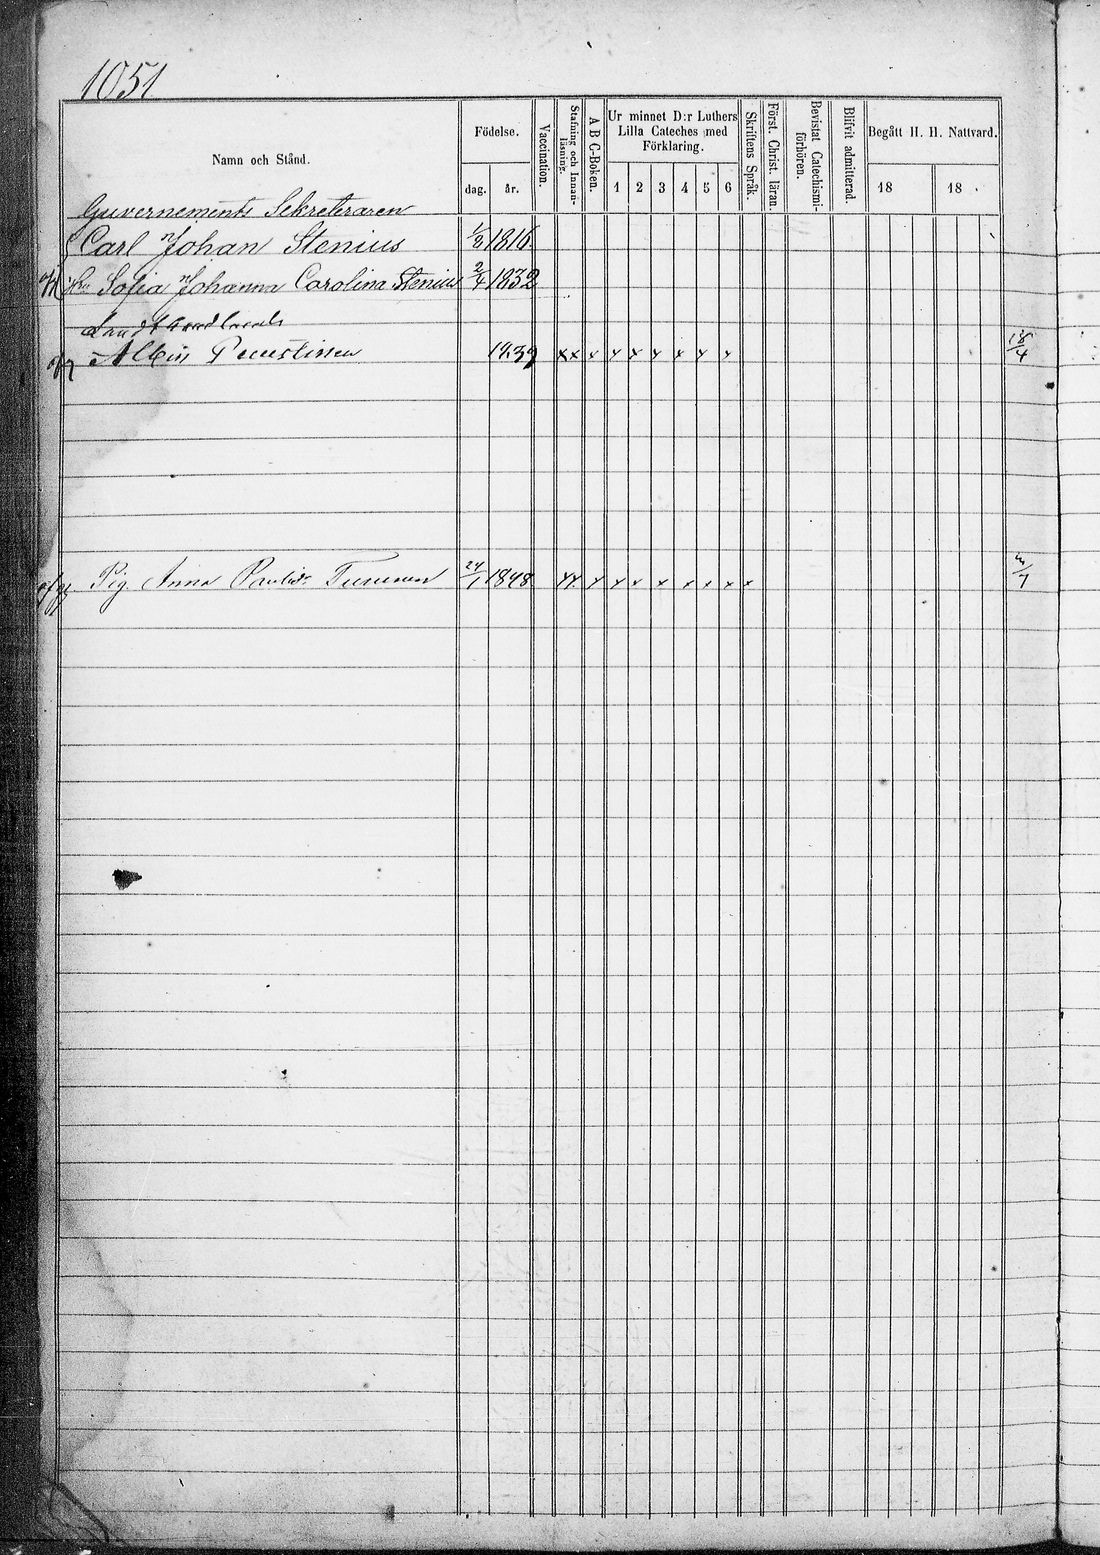 1051
Namn och Stånd.
Födelse.
dag.
år.
Vaccination.
Stafning och Innanläsning.
A B C-Boken.
Ur minnet D:r Luthers
Lilla Cateches med
Förklaring.
1 2 3 4 5 6
Skriftens Språk.
Först. Christ. läran.
Bevistat Catechismiförhören.
Blifvit admitterad.
Begått H. H. Nattvard.
18 18
Guvernements Sekreteraren
Carl Johan Stenius 1816
Sofia Johanna Carolina Stenius 2/4 1832
Albin 1839 x x x x x x x x x 18/4
Pig. Anna Turunen 24/1 1848 x x x x x x x x x x